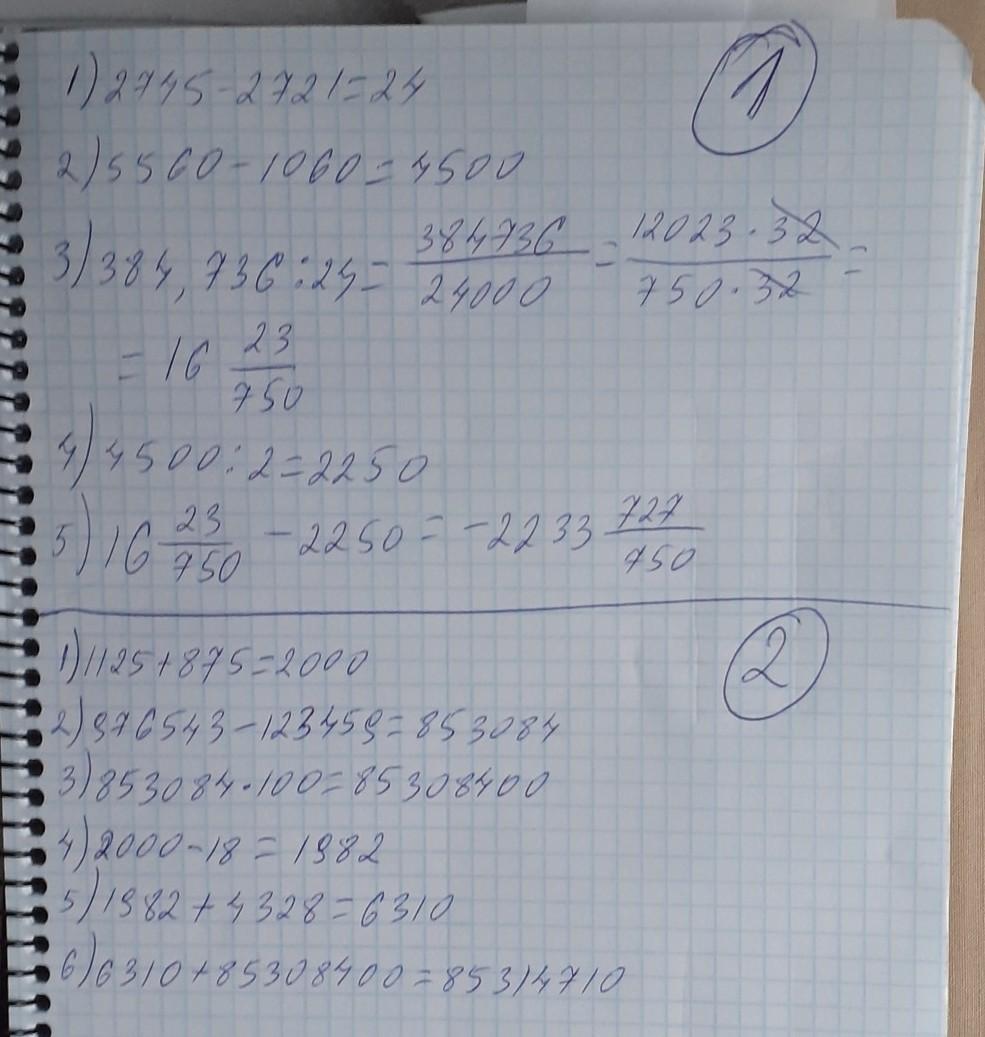 1
1) 2745 - 2721 = 24
2) 5560 - 1060 = 4500
3) 384,736 : 24 = 384736/24000 = 12023 · 32/750 · 32 =
= 16 23/750
4) 4500 : 2 = 2250
5) 16 23/750 - 2250 = -2233 727/750
2
1) 1125 + 875 = 2000
2) 976543 - 123459 = 853084
3) 853084 · 100 = 85308400
4) 2000 - 18 = 1982
5) 1982 + 4328 = 6310
6) 6310 + 85308400 = 85314710